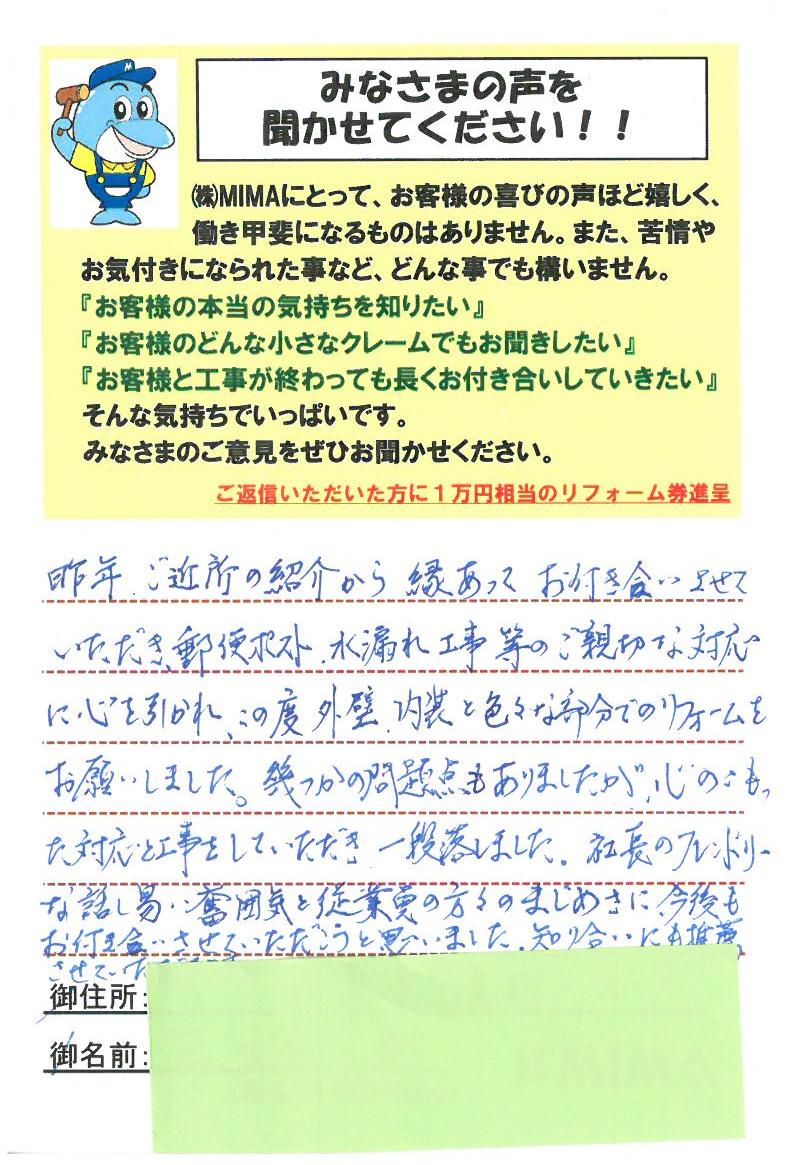 みなさまの声を
聞かせてください！！
㈱MIMAにとって、お客様の喜びの声ほど嬉しく、
働き甲斐になるものはありません。また、苦情や
お気付きになられた事など、どんな事でも構いません。
『お客様の本当の気持ちを知りたい』
『お客様のどんな小さなクレームでもお聞きしたい』
『お客様と工事が終わっても長くお付き合いしていきたい』
そんな気持ちでいっぱいです。
みなさまのご意見をぜひお聞かせください。
ご返信いただいた方に１万円相当のリフォーム券進呈
昨年、ご近所の紹介から縁あって お付き合いさせて
いただき、郵便ポスト、水漏れ工事等のご親切な対応
に心を引かれ、この度外壁、内装と色々な部分でのリフォームを
お願いしました。幾つかの問題点もありましたが、心のこもっ
た対応と工事をしていただき 一段落しました。社長のフレンドリー
な話し易い雰囲気と従業員の方々のまじめさに、今後も
お付き合いさせていただこうと思いました。知り合いにも推薦
させていた
御住所：
御名前：